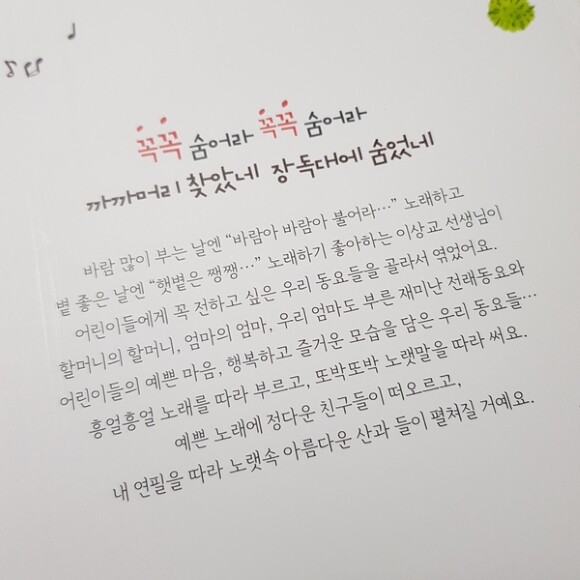 꼭꼭 숨어라 꼭꼭 숨어라
까까머리 찾았네 장독대에 숨었네
바람 많이 부는 날엔 “바람아 바람아 불어라…” 노래하고
볕 좋은 날엔 “햇볕은 쨍쨍…” 노래하기 좋아하는 이상교 선생님이
어린이들에게 꼭 전하고 싶은 우리 동요들을 골라서 엮었어요.
할머니의 할머니, 엄마의 엄마, 우리 엄마도 부른 재미난 전래동요와
어린이들의 예쁜 마음, 행복하고 즐거운 모습을 담은 우리 동요들…
흥얼흥얼 노래를 따라 부르고, 또박또박 노랫말을 따라 써요.
예쁜 노래에 정다운 친구들이 떠오르고,
내 연필을 따라 노랫속 아름다운 산과 들이 펼쳐질 거예요.